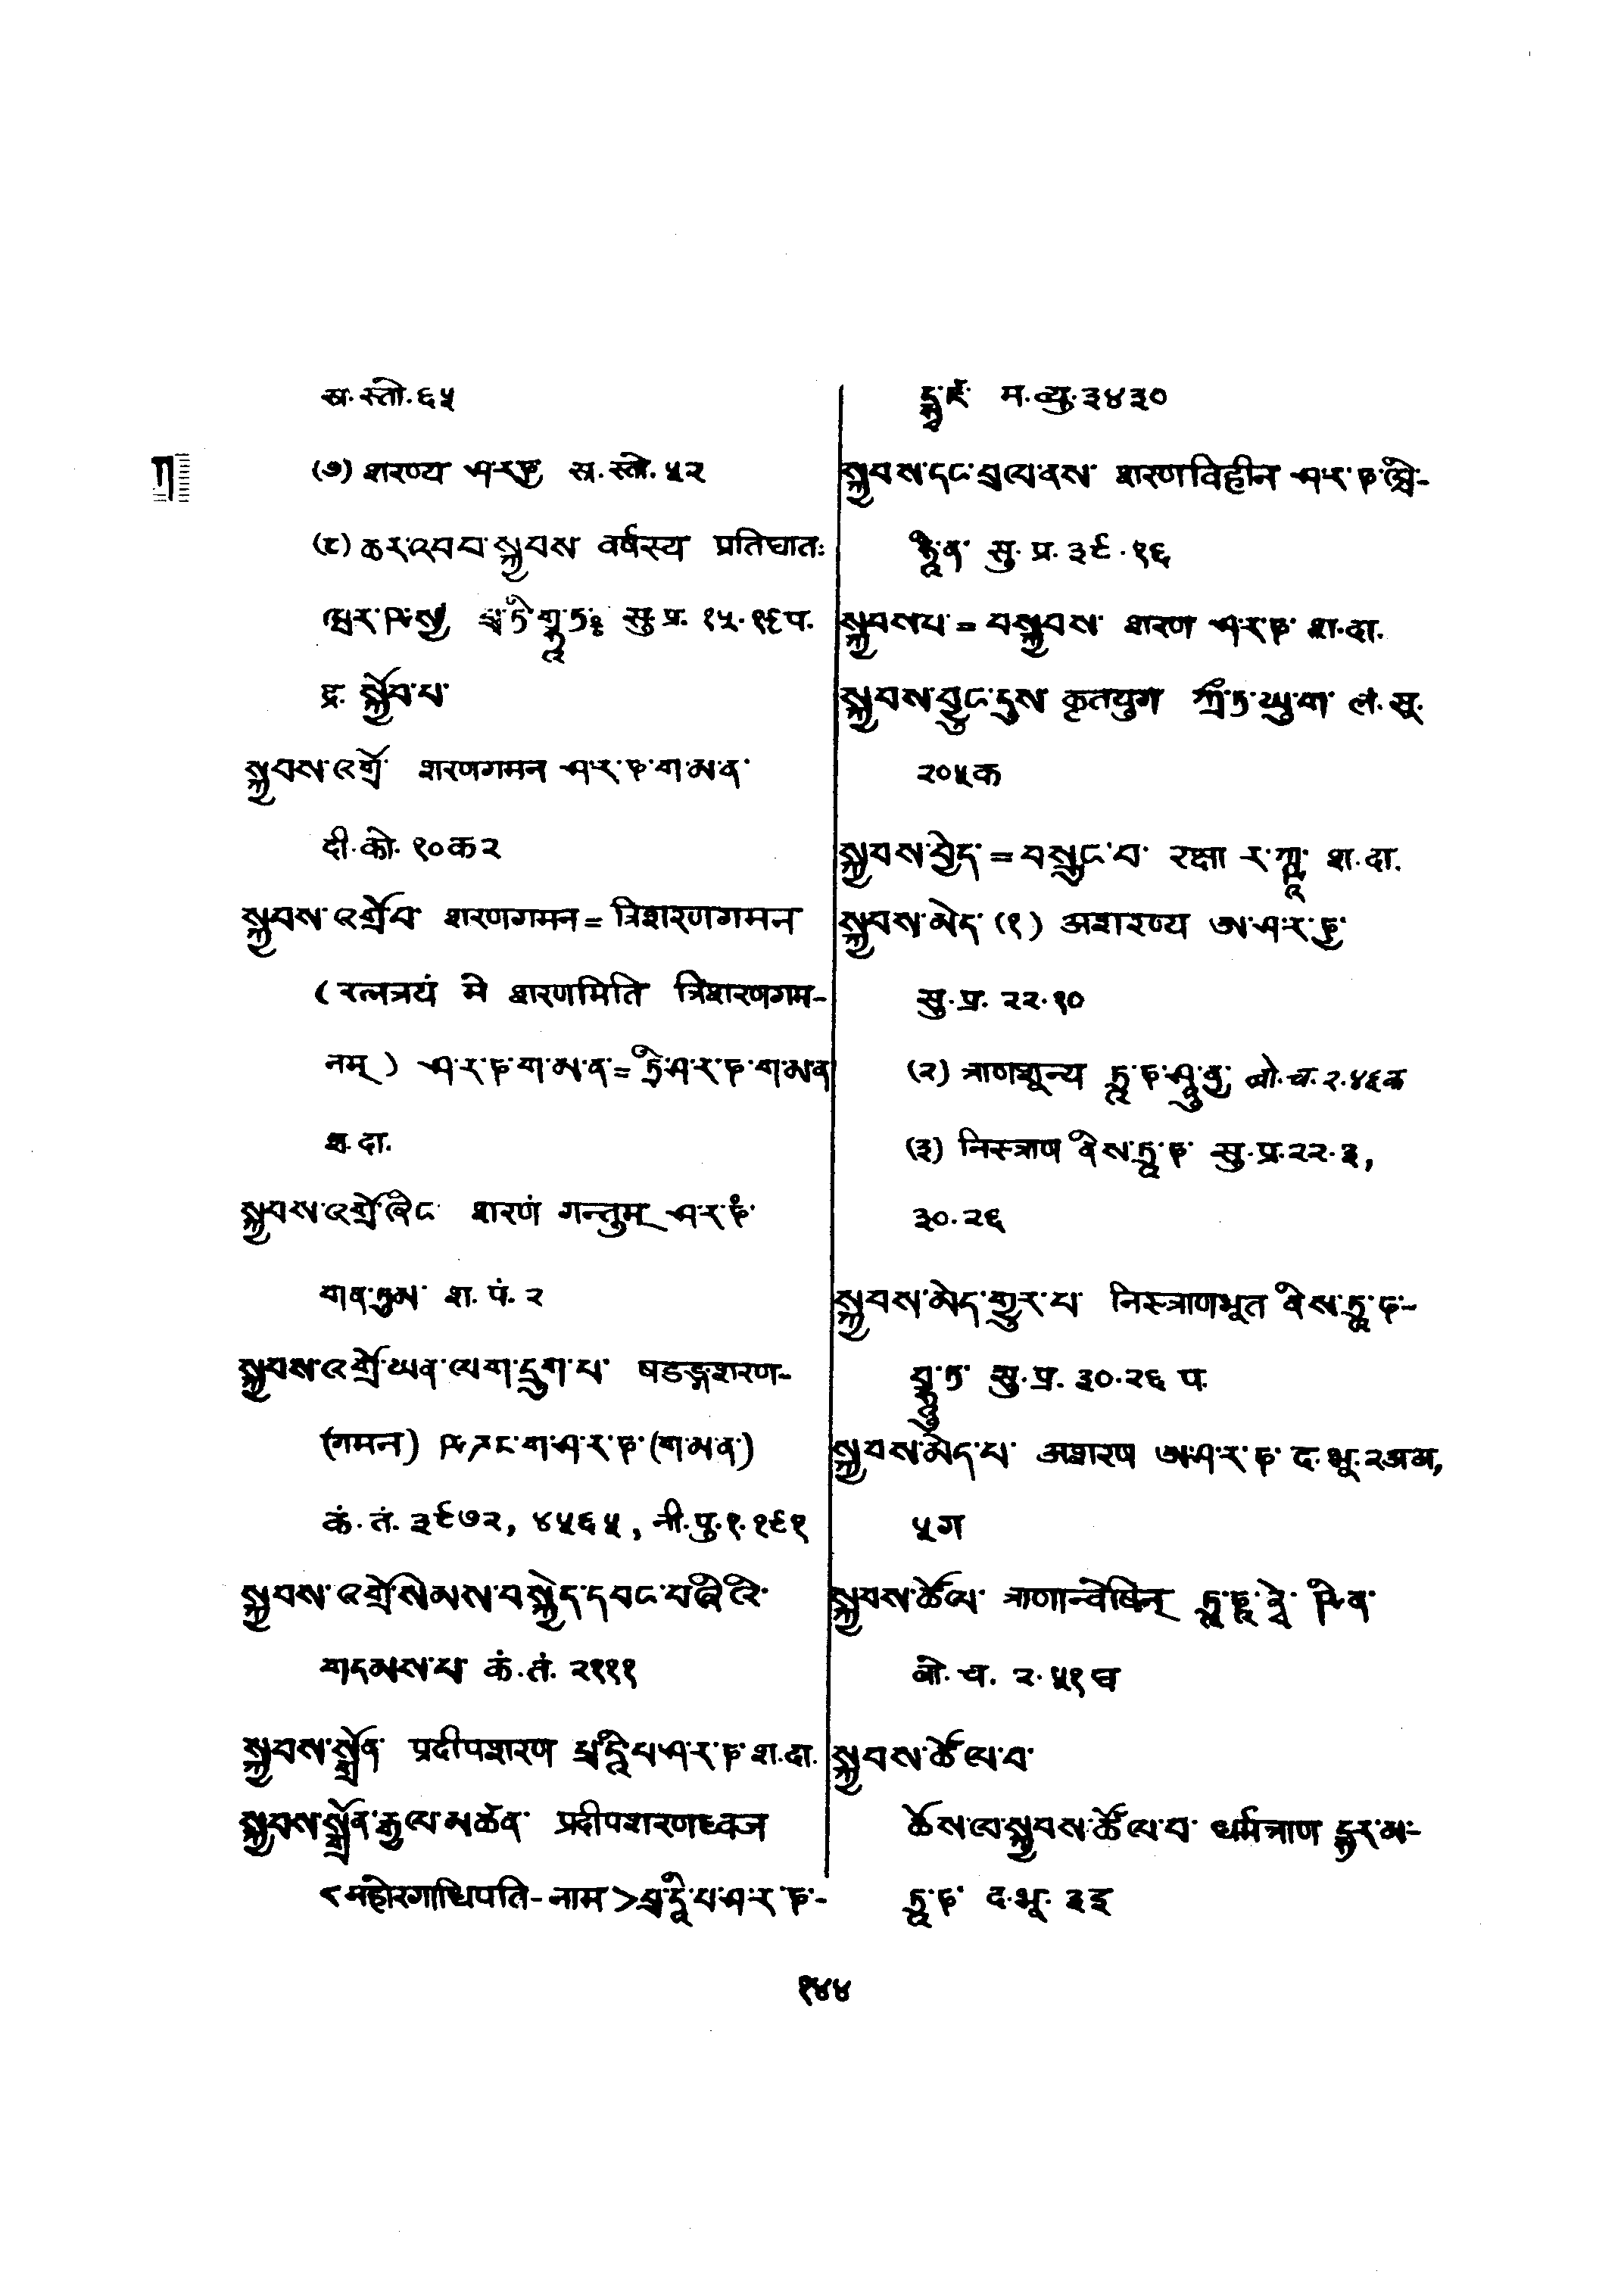 स्र. स्तो. ६५
(७) शरण्य ཤ་ར་ཎྱ स्र. स्तो. ५२
(८) ཆར་འབབ་སྐྱབས वर्षस्य प्रतिघातः
ཝར་ཥ་སྱ པྲ་ཏི་གྷཱ་ཏཿ सु. प्र. १५.१९प.
द्र. སྐྱོབ་པ་
སྐྱབས་འགྲོ་ शरणगमन ཤ་ར་ཎ་ག་མ་ན་
दी. को. १०क२
སྐྱབས་འགྲོབ་ शरणगमन = त्रिशरणगमन
(रत्नत्रयं मे शरणमिति त्रिशरणगम-
नम्) ཤ་ར་ཎ་ག་མ་ན་ = ཏྲི་ཤ་ར་ཎ་ག་མ་ན
श. दा.
སྐྱབས་འགྲོ་ཞིང་ शरणं गन्तुम् ཤ་ར་ཎཾ་
གན་ཏུམ་ श. पं. २
སྐྱབས་འགྲོ་ཡན་ལག་དྲུག་པ་ षडङ्गशरण-
(गमन) ཥ་ཌང་ག་ཤ་ར་ཎ་(ག་མ་ན་)
कं. तं. ३९७२, ४५६५, नी. पु. १.१९१
སྐྱབས་འགྲོ་སེམས་བསྐྱེད་དབང་བཞི་འི་
གདམས་པ་ कं. तं. २१११
སྐྱབས་སྒྲོན་ प्रदीपशरण པྲ་དཱི་པ་ཤ་ར་ཎ་ श. दा.
སྐྱབས་སྒྲོན་རྒྱལ་མཚན་ प्रदीपशरणध्वज
<महोरगाधिपति-नाम> པྲ་དཱི་པ་ཤ་ར་ཎ་-
དྷྭ་ཛ་ म. व्यु. ३४३०
སྐྱབས་དང་བྲལ་ནས་ शरणविहीन ཤ་ར་ཎ་ཝི་-
ཧཱི་ན་ सु. प्र. ३९.१६
སྐྱབས་པ་ = བསྐྱབས་ शरण ཤ་ར་ཎ་ श. दा.
སྐྱབས་བྱུང་དུས་ कृतयुग ཀྲྀ་ཏ་ཡུ་ག་ लं. सू.
२०५क
སྐྱབས་བྱེད་ = བསྲུང་བ་ रक्षा ར་ཀྵཱ་ श. दा.
སྐྱབས་མེད་ (१) अशरण्य ཨ་ཤ་ར་ཎྱ་
सु. प्र. २२.१०
(२) त्राणशून्य ཏྲཱ་ཎ་ཤཱུ་ནྱ་ बो. च. २.४६क
(३) निस्त्राण ནིས་ཏྲཱ་ཎ་ सु. प्र. २२.३,
३०.२६
སྐྱབས་མེད་གྱུར་པ་ निस्त्राणभूत ནིས་ཏྲཱ་ཎ་-
བྷཱུ་ཏ་ सु. प्र. ३०.२६ प.
སྐྱབས་མེད་པ་ अशरण ཨ་ཤ་ར་ཎ་ द. भू. २अअ,
५ग
སྐྱབས་ཚོལ་ त्राणान्वेषिन् ཏྲཱ་ཎཱ་ནྭེ་ཥིན་
बो. च. २.५१घ
སྐྱབས་ཚོལ་བ་
ཆོས་ལ་སྐྱབས་ཚོལ་བ་ धर्मत्राण དྷར་མ་-
ཏྲཱ་ཎ་ द. भू. ३इ
१४४